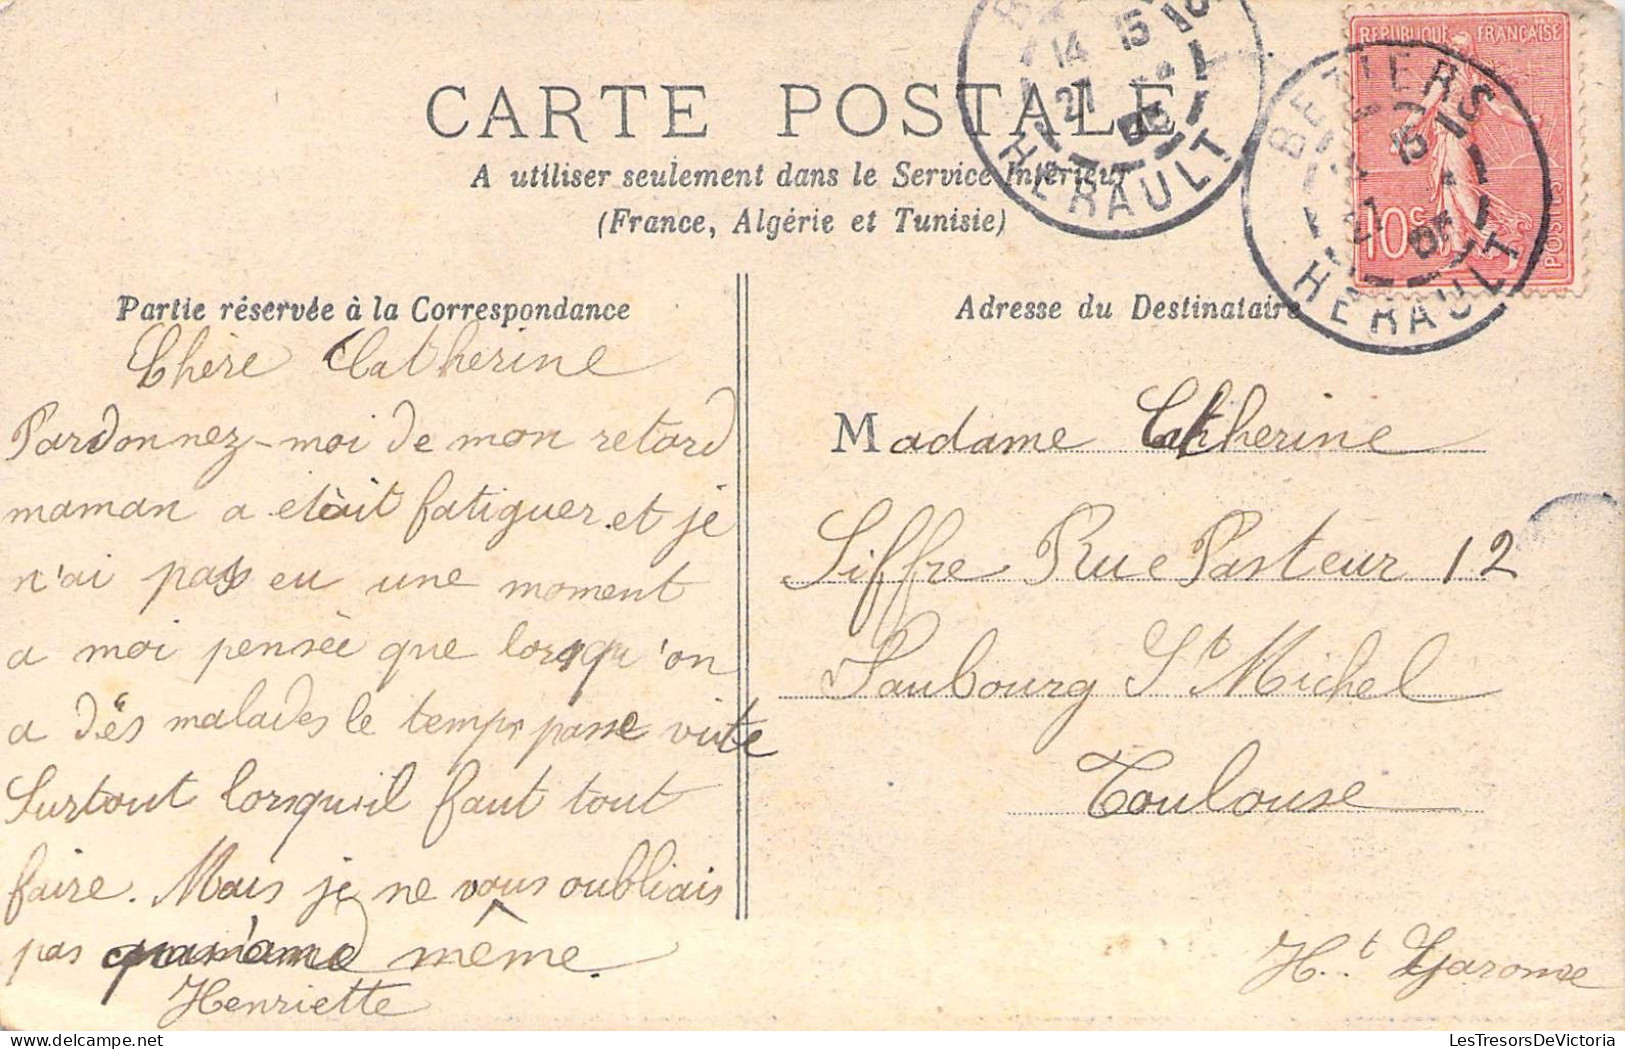 CARTE POSTALE
A utiliser seulement dans le Service Intérieur
(France, Algérie et Tunisie)
BEZIERS
14 15
27
HERAULT
REPUBLIQUE FRANÇAISE
10c
POSTES
BEZIERS
15
27
HERAULT
Partie réservée à la Correspondance
Chère Catherine
Pardonnez-moi de mon retard
maman a etait fatiguer et je
n'ai pas eu une moment
a moi pensée que lorsqu'on
a dés malades le temps passe vite
Surtout lorsqu'il faut tout
faire. Mais je ne vous oubliais
pas même.
Henriette
Adresse du Destinataire
Madame Catherine
Siffre Rue Pasteur 12
Faubourg St Michel
Toulouse
Ht Garonne
LesTresorsDeVictoria.com